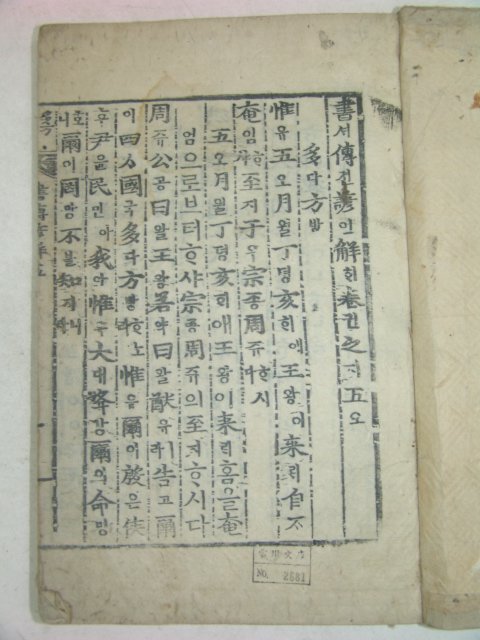 書셔傳젼諺언解ᄒᆡ卷권之지五오
多다方방
惟유五오月월丁뎡亥ᄒᆡ예王왕이來ᄅᆡ自ᄌᆞ
庵엄ᄒᆞ샤至지于우宗종周쥬ᄒᆞ시다
五오月월丁뎡亥ᄒᆡ애王왕이來ᄅᆡ홈을庵
엄으로브터ᄒᆞ샤宗종周쥬의至지ᄒᆞ시다
周쥬公공曰왈王왕若약曰왈猷유라告고爾
이四ᄉᆞ國국多다方방ᄒᆞ노라惟유爾이殷은侯
후尹윤民민아我아惟유大대降강爾이命명
ᄒᆞ니爾이罔망不블知지니라
書傳諺解五
No. 2681